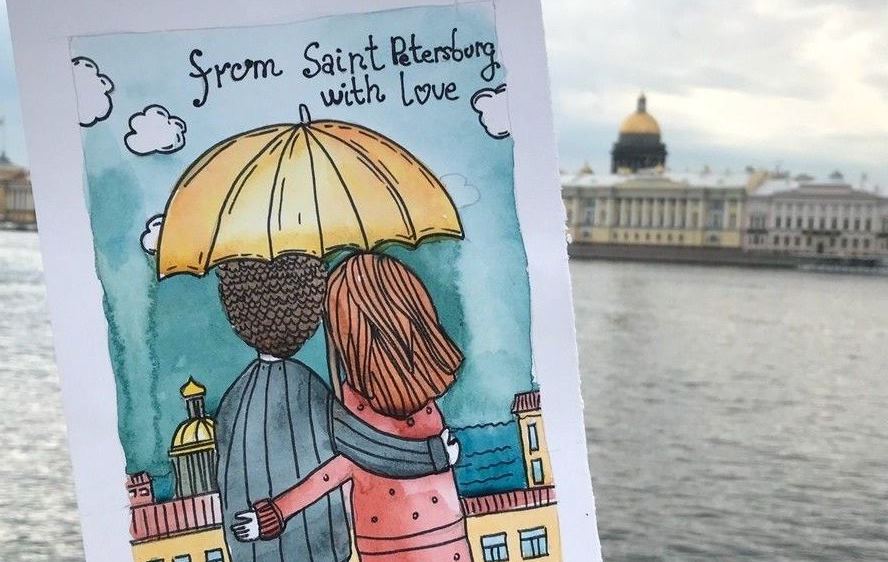 from Saint Petersburg
with love